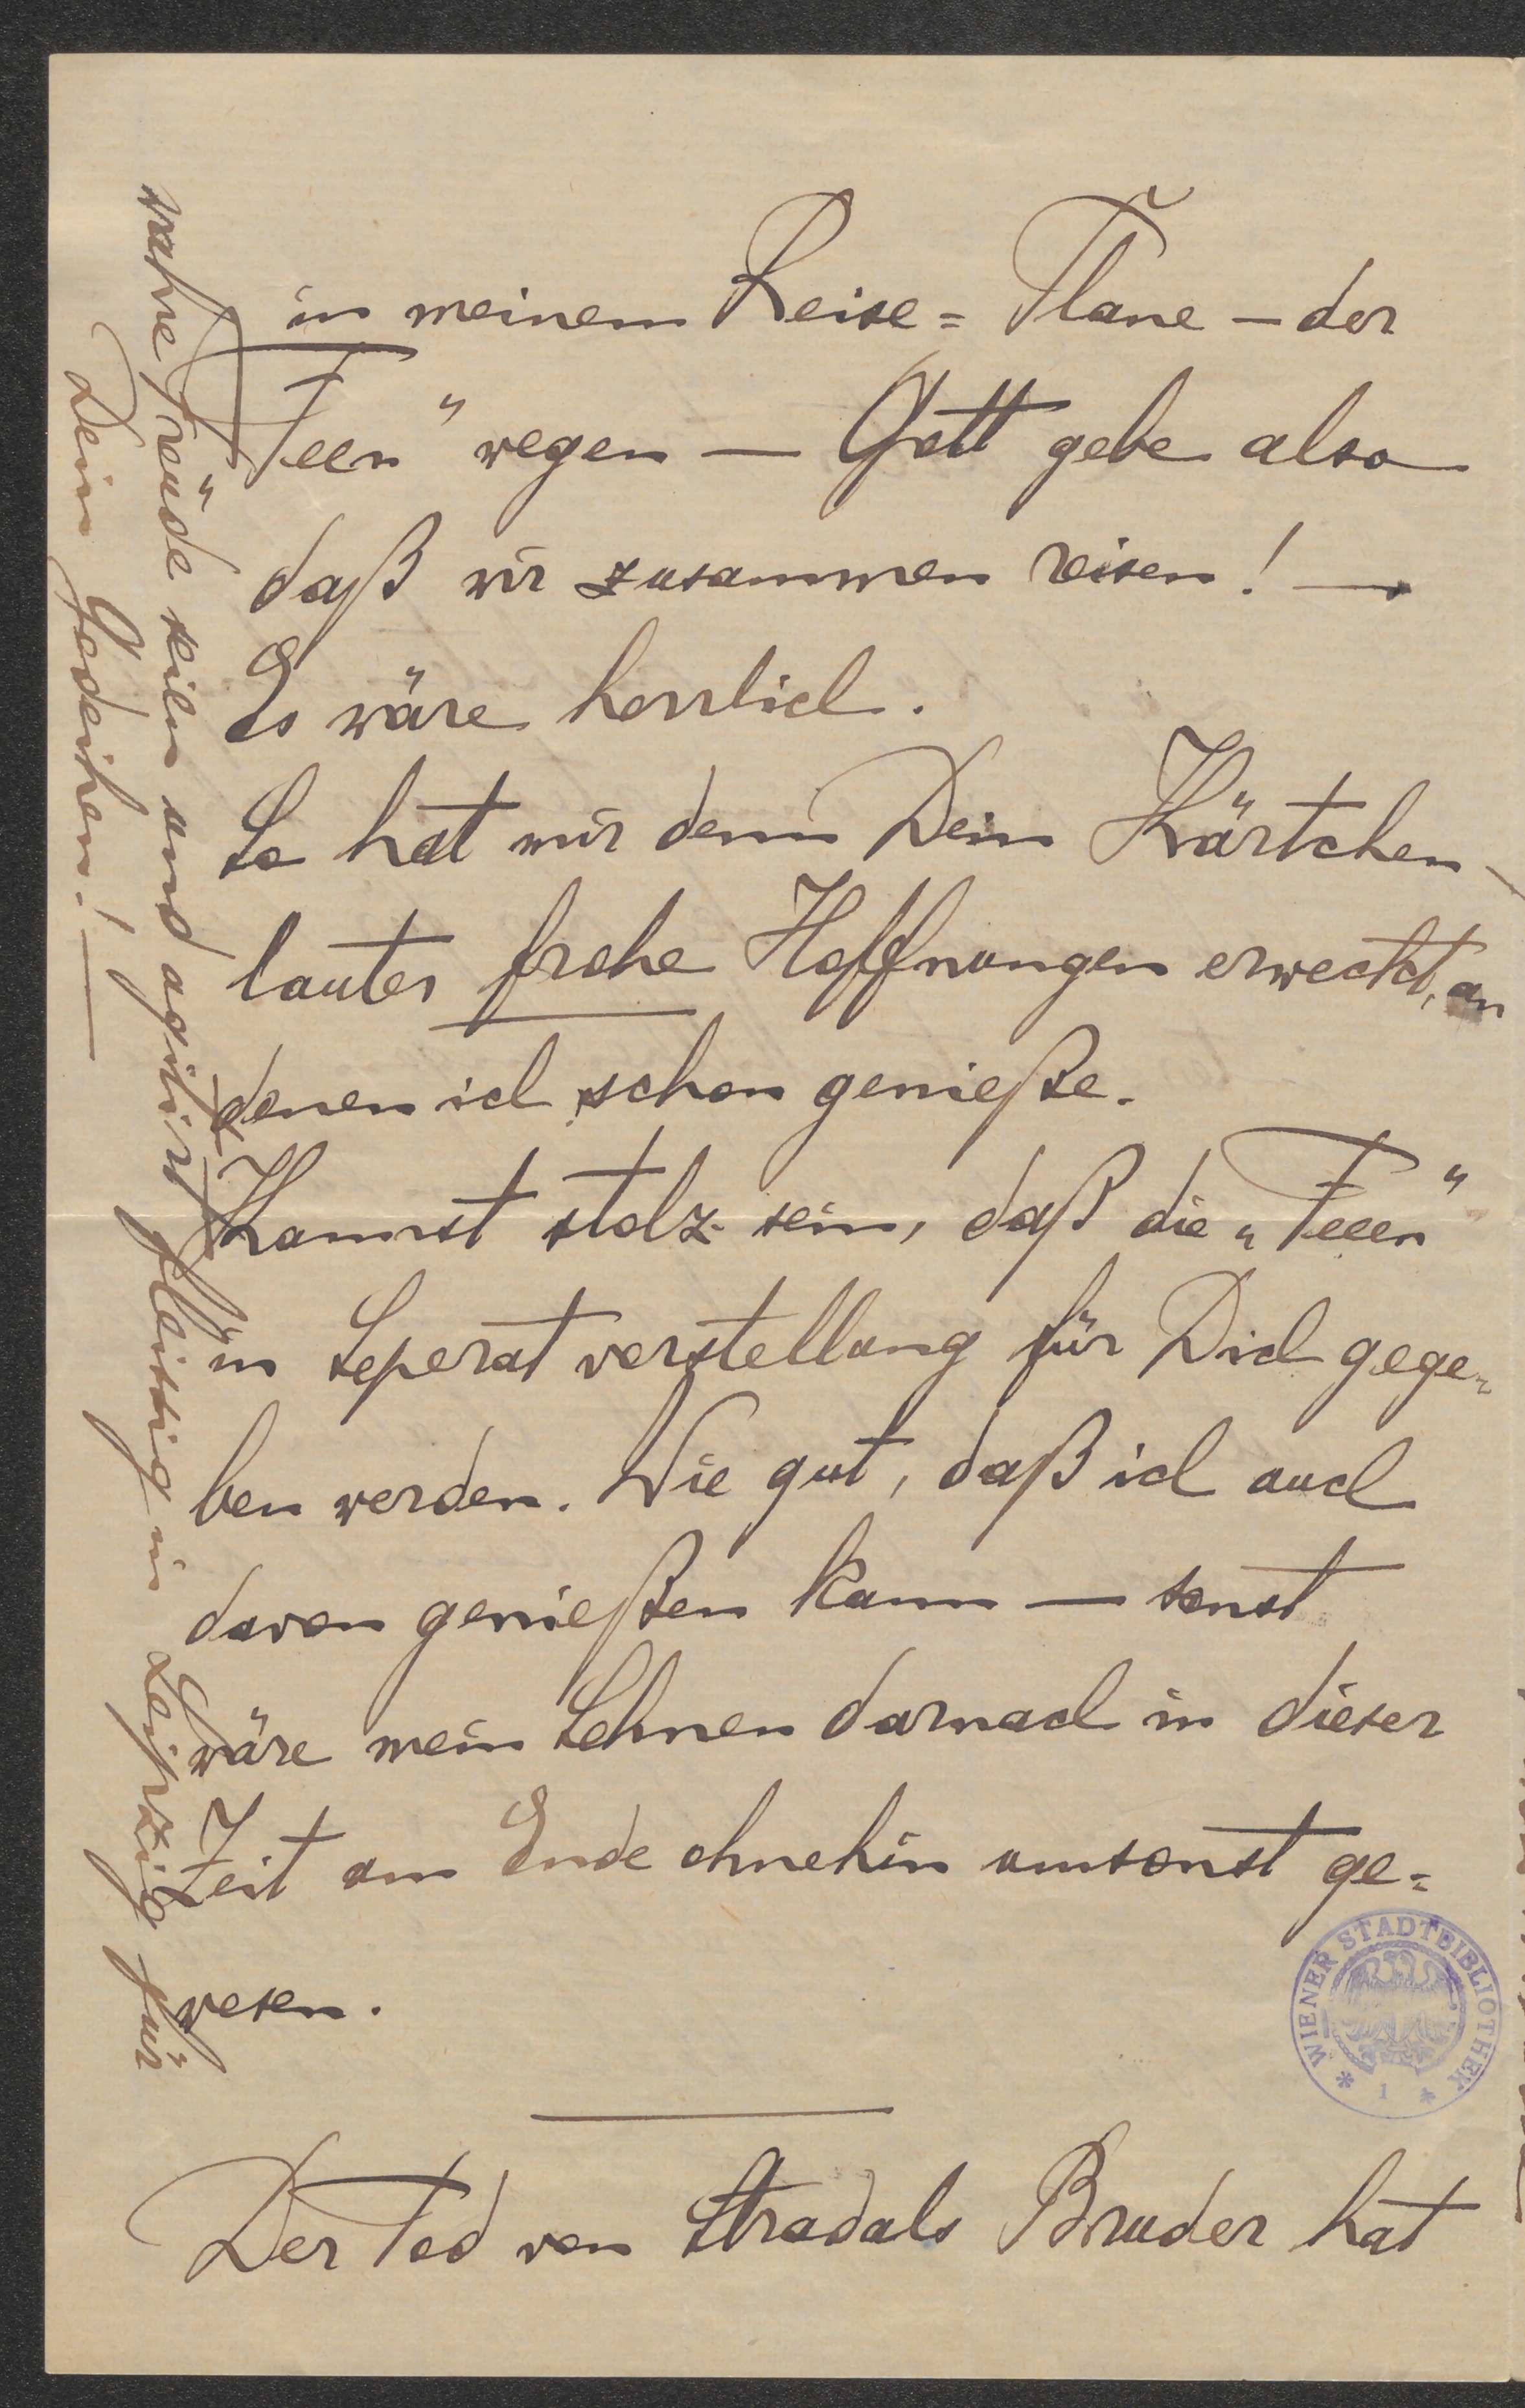 in meinem Reise= Plane – der
„Feen“ wegen — Gott gebe also
daß wir zusammen reisen! —
Es wäre herrlich.
So hat mir denn Dein Kärtchen
lauter frohe Hoffnungen erweckt, an
denen ich schon genieße.
Kannst stolz sein, daß die „Feeen“
in Seperatvorstellung für Dich gege=
ben werden. Wie gut, daß ich auch
davon genießen kann — sonst
wäre mein Sehnen darnach in dieser
Zeit am Ende ohnehin umsonst ge=
wesen.
Der Tod von Stradals Bruder hat
wahre Freude sein und agitirt fleissig in Leipzig für
Dein Gedeihen! —
WIENER STADTBIBLIOTHEK
* 1 *